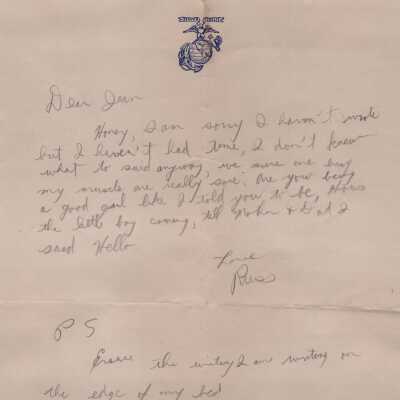 Dear Jean
Honey, I am sorry I haven't wrote
but I haven't had time, I don't know
what to said anyway, we sure are busy
my muscles are really sore. Are you being
a good girl like I told you to be, Hows
the little boy coming, tell Mother + Dad I
said Hello
Love
Russ
P S
Excuse the writing I am writing on
the edge of my bed